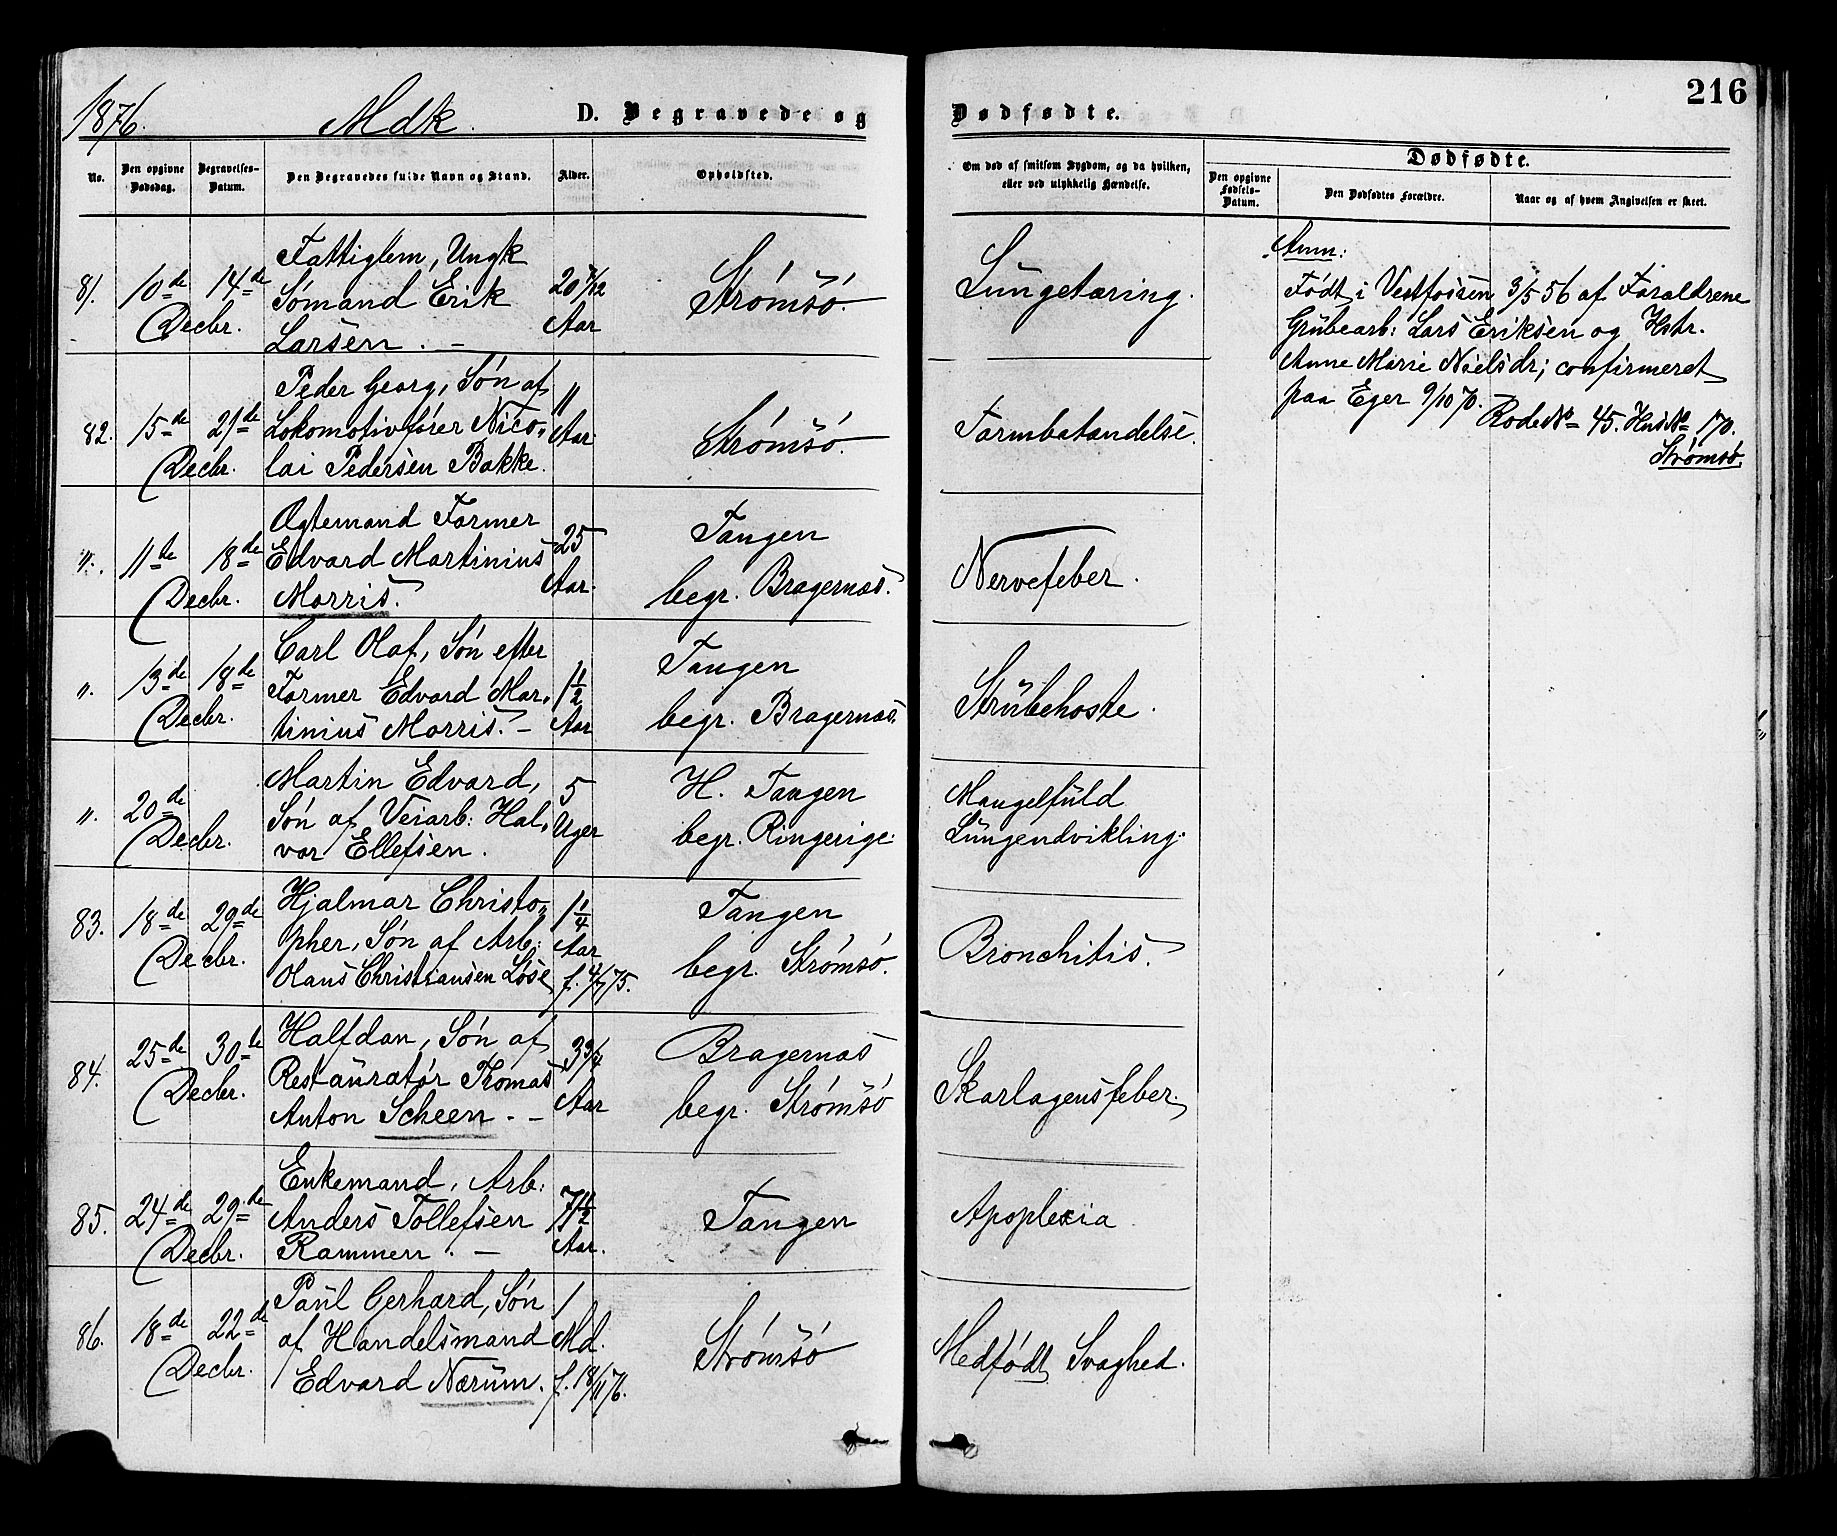 216
1876.
Mdk.
D. Begravede og
Dødfødte.
No.
Den opgivne Dødsdag.
Begravelses-Datum.
Den Begravedes fulde Navn og Stand.
Alder.
Opholdsted.
Om død af smitsom Sygdom, og da hvilken,
eller ved ulykkelig Hændelse.
Dødfødte.
Den opgivne Fødsels-Datum.
Den Dødfødtes Forældre.
Naar og af hvem Angivelsen er skeet.
81. 10de 14de
Decbr.
Fattiglem, Ungk
Sømand Erik
Larsen. –
20 7/12
Aar
Strømsø.
Lungetæring.
Anm:
Født i Vestfossen 3/5 56 af Forældrene
Grubearb: Lars Eriksen og Hstr.
Anne Marie Nielsdr; confirmeret
paa Eger 9/10 70.
Rode № 45. Hus№ 170.
Strømsø.
82. 15de 21de
Decbr.
Peder Georg, Søn af
Lokomotivfører Nico-
lai Pedersen Bakke.
11
Aar
Strømsø.
Tarmbetændelse.
". 11te 18de
Decbr.
Ægtemand Farmer
Edvard Martinius
Morris.
25
Aar.
Tangen
begr. Bragernæs.
Nervefeber.
". 13de 18de
Decbr.
Carl Olaf, Søn efter
Farmer Edvard Mar-
tinius Morris. –
1 1/2
Aar
Tangen
begr. Bragernæs.
Strubehoste.
". 20de
Decbr.
Martin Edvard,
Søn af Veiarb: Hal-
vor Ellefsen.
5
Uger
H. Tangen
begr. Ringerige.
Mangelfuld
Lungeudvikling.
83. 18de 29de
Decbr.
Hjalmar Christo-
pher, Søn af Arb:
Olaus Christiansen Løse
1 1/4
Aar
Tangen
begr. Strømsø.
Bronchitis.
84. 25de 30te
Decbr.
Halfdan, Søn af
Restauratør Thomas
Anton Scheen. –
3 3/4
Aar
Bragernæs
begr. Strømsø
Skarlagensfeber.
85. 24de 29de
Decbr.
Enkemand, Arb:
Anders Tollefsen
Rammen. –
71 1/2
Aar.
Tangen
Apoplexia
86. 18de 22de
Decbr.
Paul Gerhard, Søn
af Handelsmand
Edvard Nærum.
1
Md.
f. 18/11 76.
Strømsø
Medfødt Svaghed.